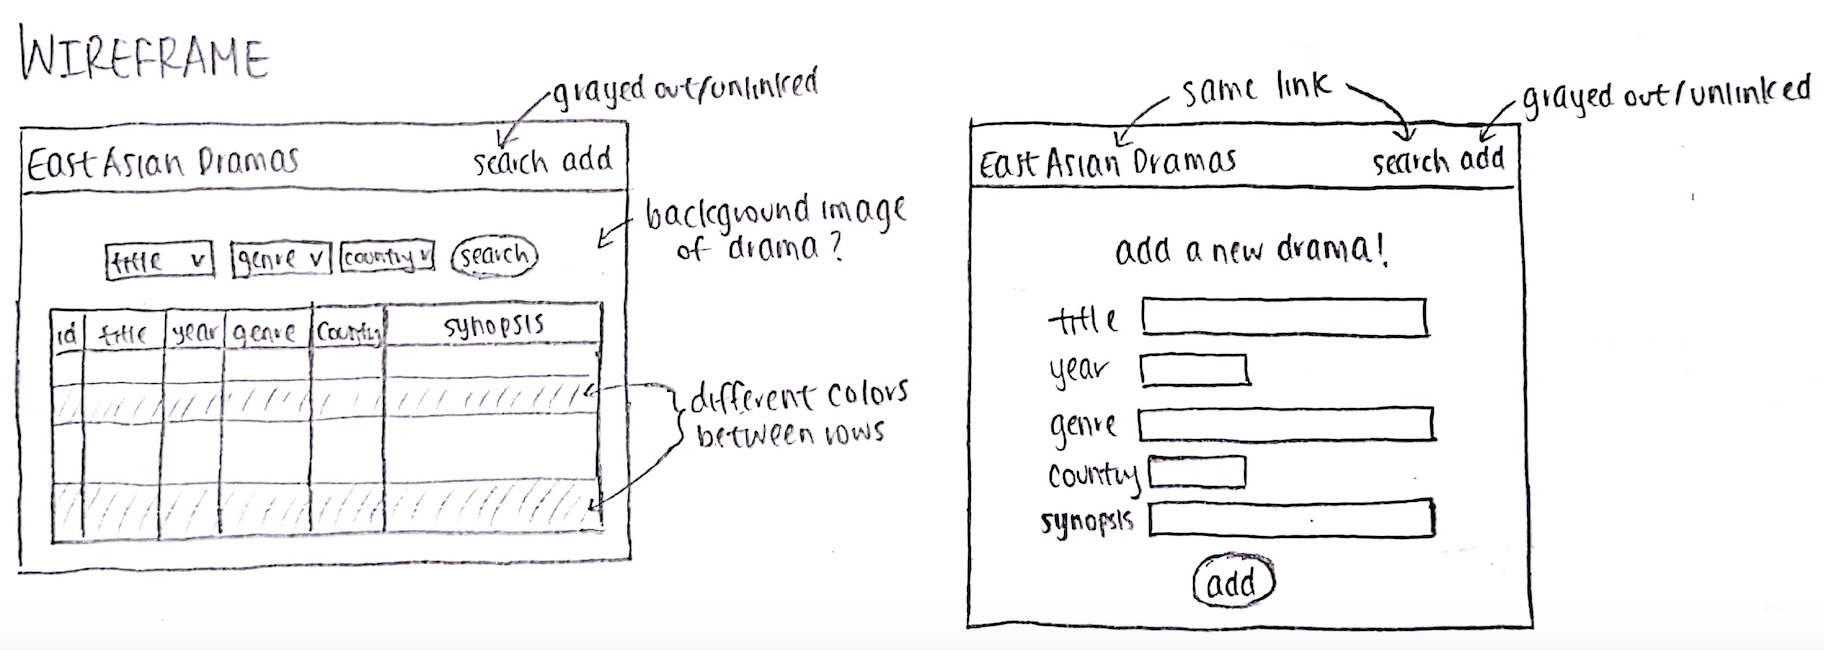 WIREFRAME
grayed out/unlinked
East Asian Dramas
search add
background image
of drama?
title v
genre v
country v
search
id
title
year
genre
country
synopsis
different colors
between rows
same link
grayed out/unlinked
East Asian Dramas
search add
add a new drama!
title
year
genre
country
synopsis
add